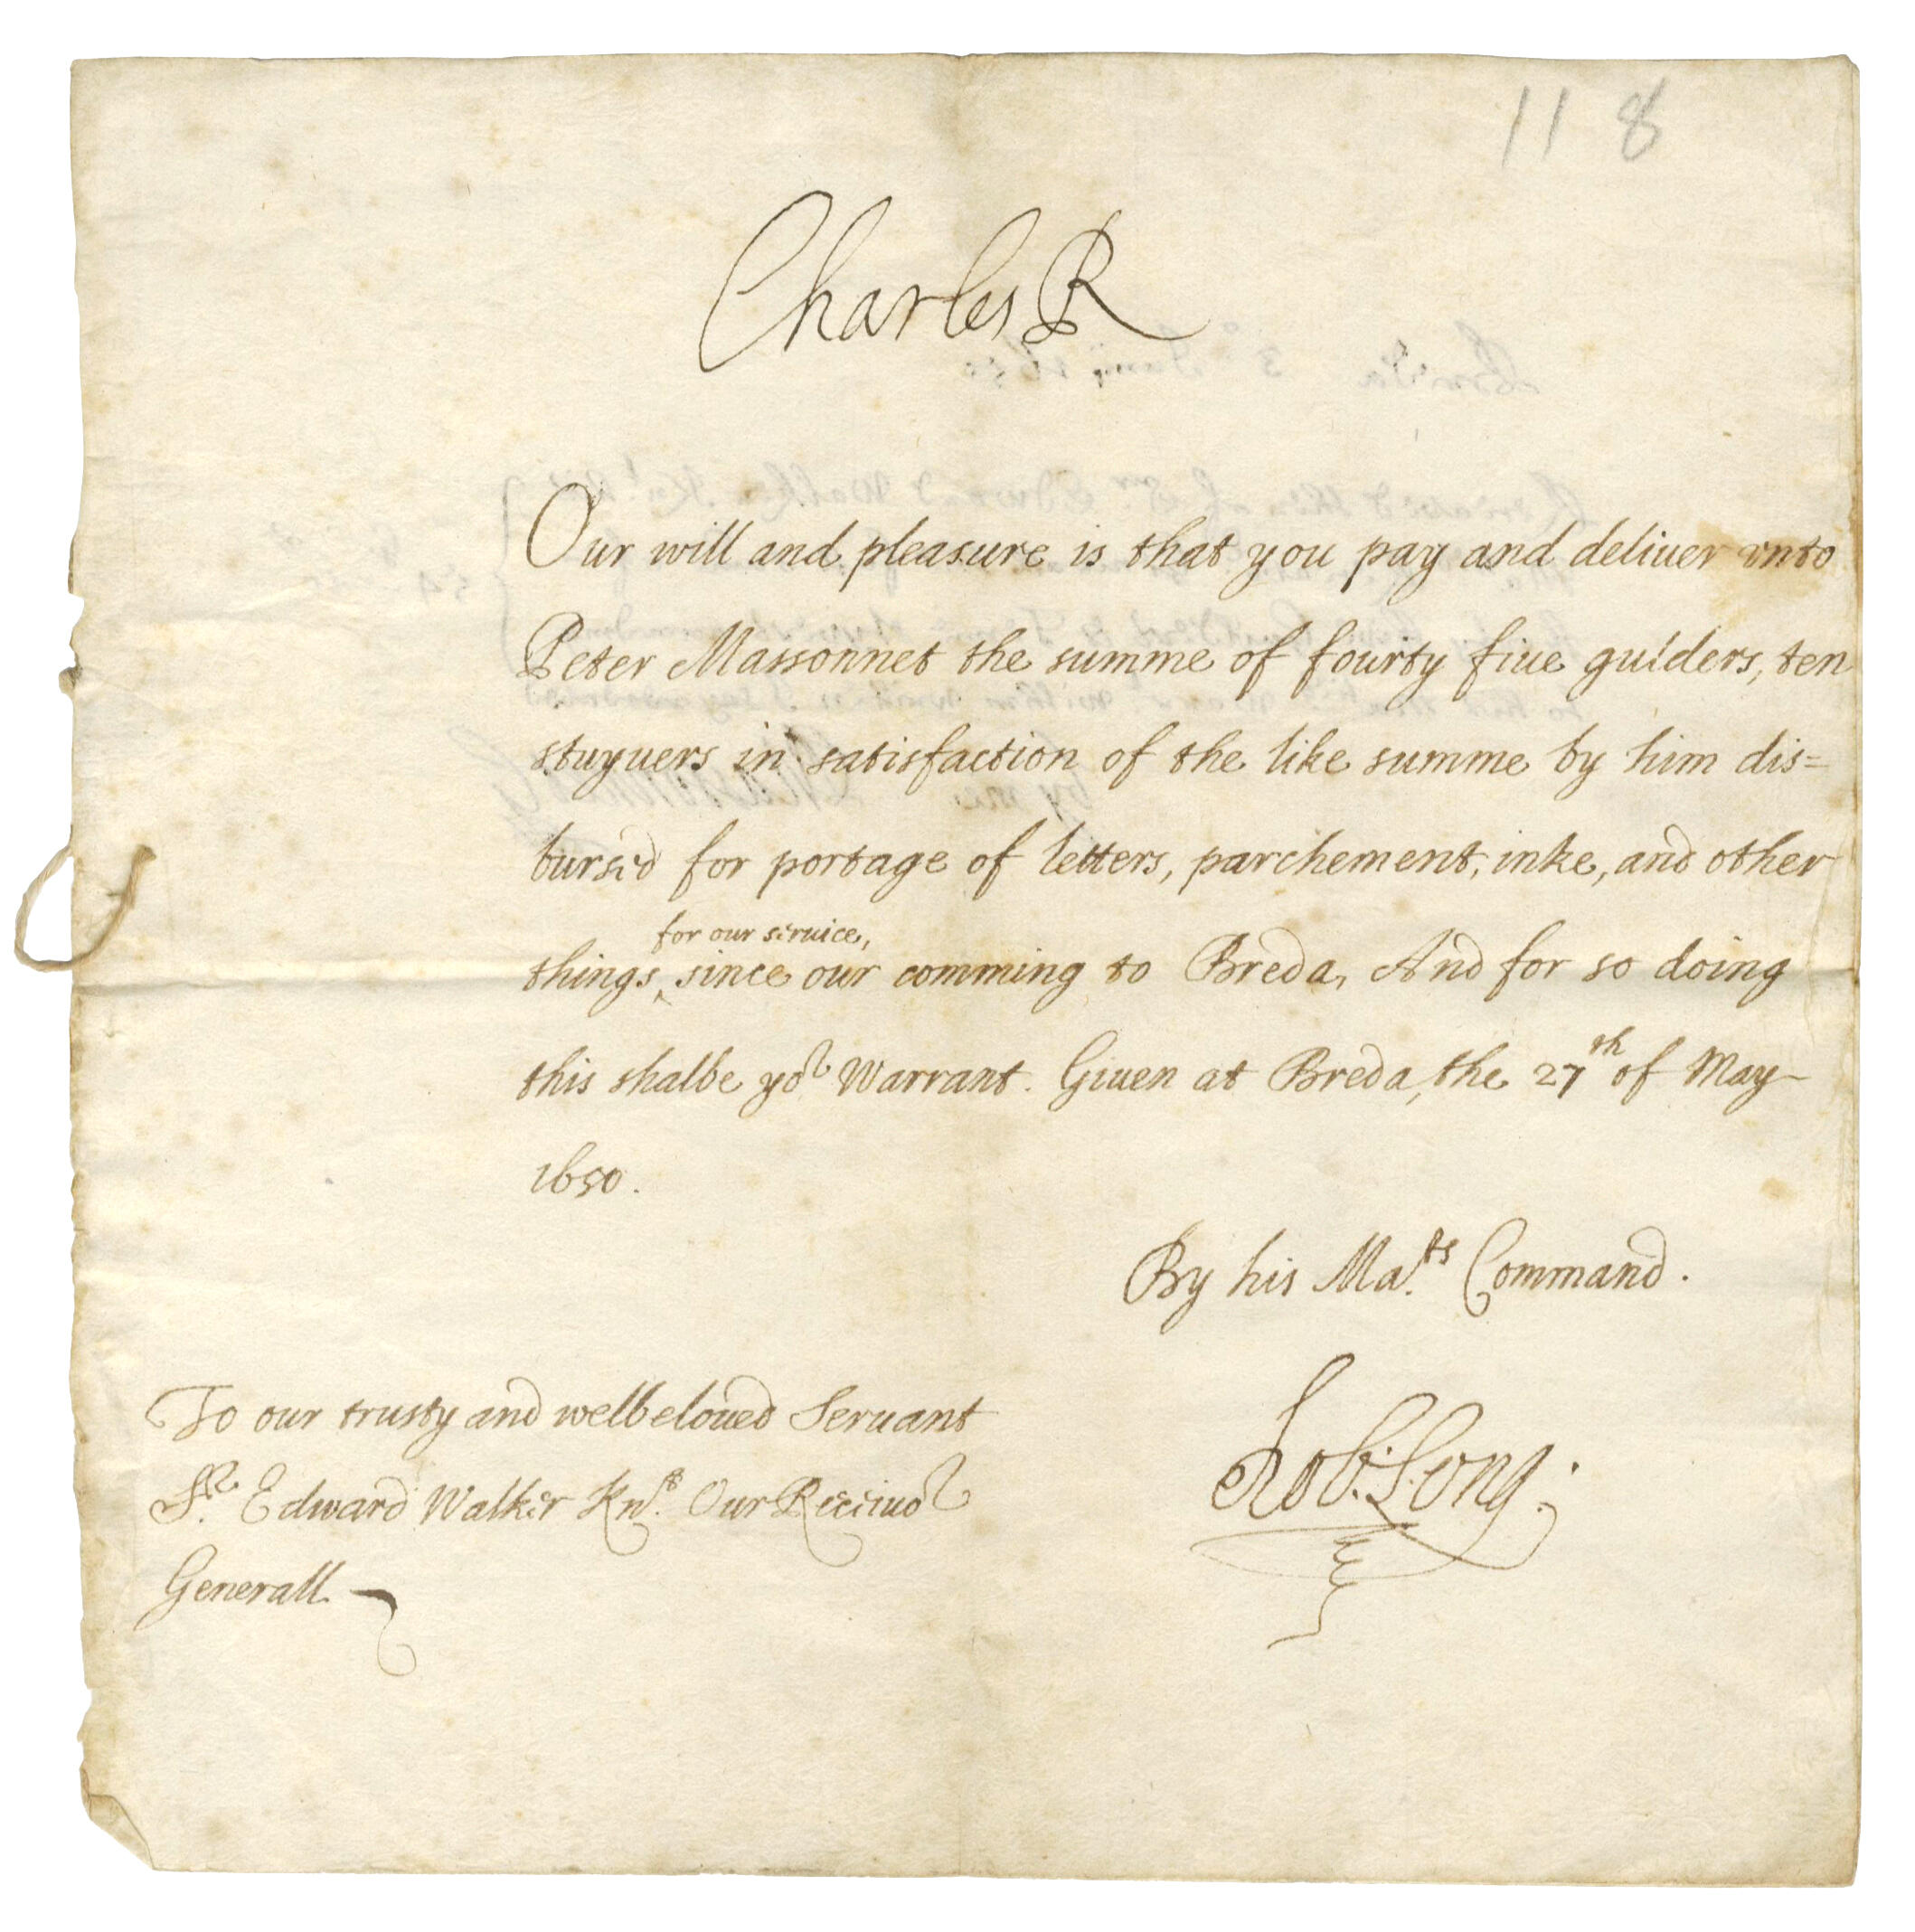 118
Charles R
Our will and pleasure is that you pay and deliuer vnto
Peter Massonnet the summe of fourty fiue gulders, ten
stuyuers in satisfaction of the like summe by him dis=
bursed for portage of letters, parchement, inke, and other
for our seruice,
things ‸ since our comming to Breda, And for so doing
this shalbe yoʳ Warrant. Giuen at Breda, the 27ᵗʰ of May
1650.
By his Ma.ᵗˢ Command.
Rob: Long:
To our trusty and welbeloued Seruant
Sʳ. Edward Walker Knᵗ. Our Receiuoʳ
Generall.